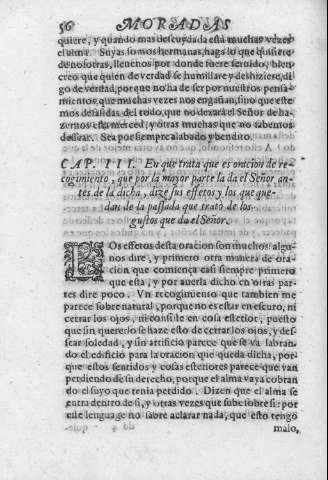 56 MORADAS
quiere, y quando mas descuydada está muchas vezes
el alma. Suyas somos hermanas, haga lo que quisiere
de nosotras, lleuenos por donde fuere seruido, bien
creo que quien de verdad se humillare y deshiziere, di-
go de verdad, porque no ha de ser por nuestros pensa-
mientos que muchas vezes nos engañan, sino que este-
mos desasidas del todo, que no dexará el Señor de ha-
zernos esta merced, y otras muchas que no sabremos
dessear. Sea por siempre alabado y bendito.
CAP. III. En que trata que es oracion de re-
cogimiento, que por la mayor parte la da el Señor an-
tes de la dicha, dize sus effetos y los que que-
dan de la passada que trató de los
gustos que da el Señor.
LOs effetos desta oracion son muchos algu-
nos dire, y primero otra manera de ora-
cion que comiença casi siempre primero
que esta, y por auerla dicho en otras par-
tes dire poco. Vn recogimiento que tambien me
parece sobrenatural, porque no es estar en escuro, ni
cerrar los ojos, ni consiste en cosa esterior, puesto
que sin quererlo se haze esto de cerrar los ojos, y des-
sear soledad, y sin artificio parece que se va labran-
do el edificio para la oracion que queda dicha, por-
que estos sentidos y cosas esteriores parece que van
perdiendo de su derecho, porque el alma vaya cobran
do el suyo que tenia perdido. Dizen que el alma se
entra dentro de si, y otras vezes que sube sobre si: por
este lenguage no sabre aclarar nada, que esto tengo
malo,